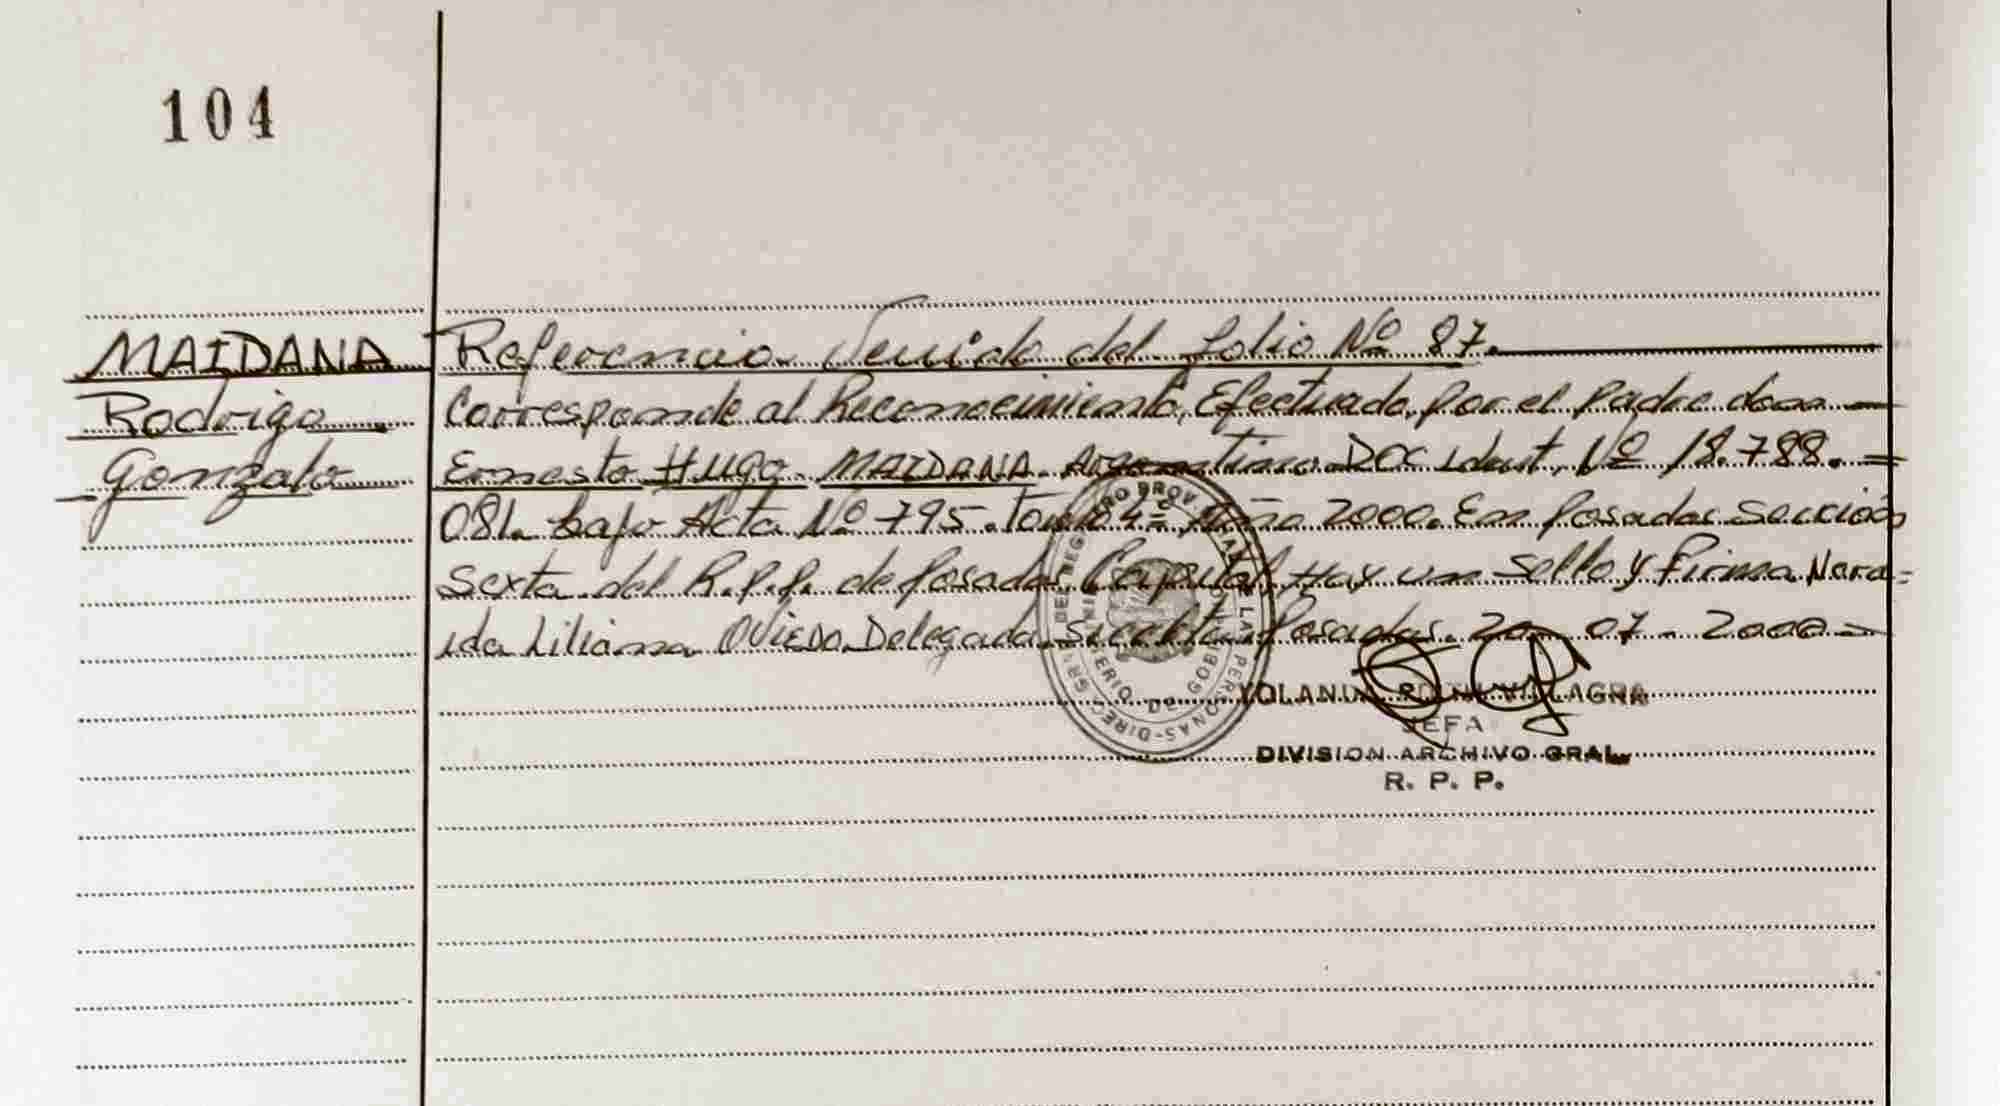 104
MAIDANA
Rodrigo
Gonzalo
Referencia Venida del folio Nº 87.
Corresponde al Reconocimiento, Efectuado, por el padre don
Ernesto Hugo MAIDANA. Argentino Doc ident, Nº 18.788.=
081. bajo Acta Nº 795. Tomo 84= Año 2000. En Posadas Sección
Sexta del R.P.P. de Posadas Capital, Hay un Sello y Firma Nora=
ida Liliana OVIEDO Delegada. Posadas. 20 - 07 - 2000 -
VILLAGRA
JEFA
DIVISION ARCHIVO GRAL.
R. P. P.